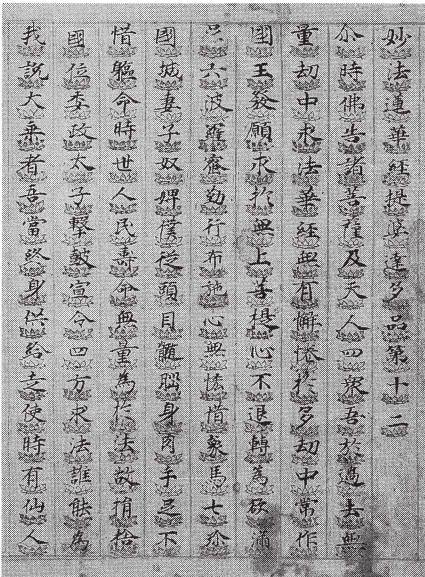 妙法蓮華經提婆達多品第十二
尒時佛告諸菩薩及天人四衆吾於過去無
量劫中求法華經無有懈惓於多劫中常作
國王發願求於無上菩提心不退轉為欲滿
足六波羅蜜勤行布施心無悋惜象馬七珍
國城妻子奴婢僕從頭目髓腦身肉手足不
惜軀命時世人民壽命無量為於法故捐捨
國位委政太子擊皷宣令四方求法誰能為
我說大乗者吾當終身供給走使時有仙人